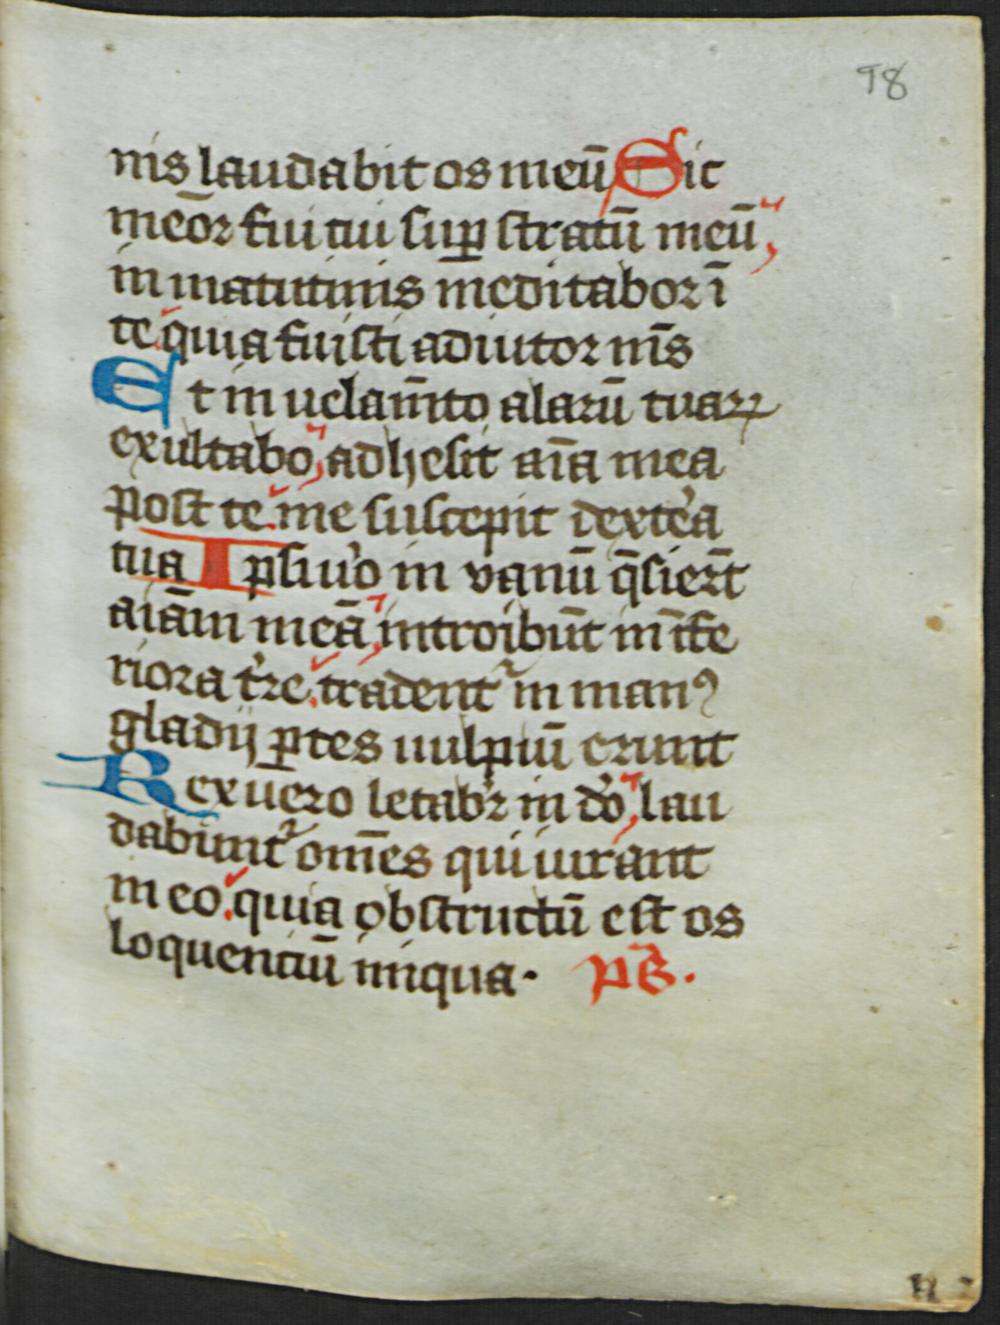 98
nis laudabit os meū Sic
meōr fui tui suꝑ stratū meū,
in matutinis meditabor ī
te. quia fuisti adiutor m̄s
Et in uelam̄to alarū tuaꝝ
exultabo, adhesit aīa mea
post te. me suscepit dext̓a
tua Ipsi u̓o in vanū q̄sier̄t
aiām meā, introibūt in īfe
riora t̓re. tradent᷑ in manꝰ
gladij ꝑtes uulpiū erunt
Rex uero letab᷑r in dō, lau
dabunt᷑ om̄es qui iurant
in eo. quia obstructū est os
loquenciū iniqua. p̄s̄.